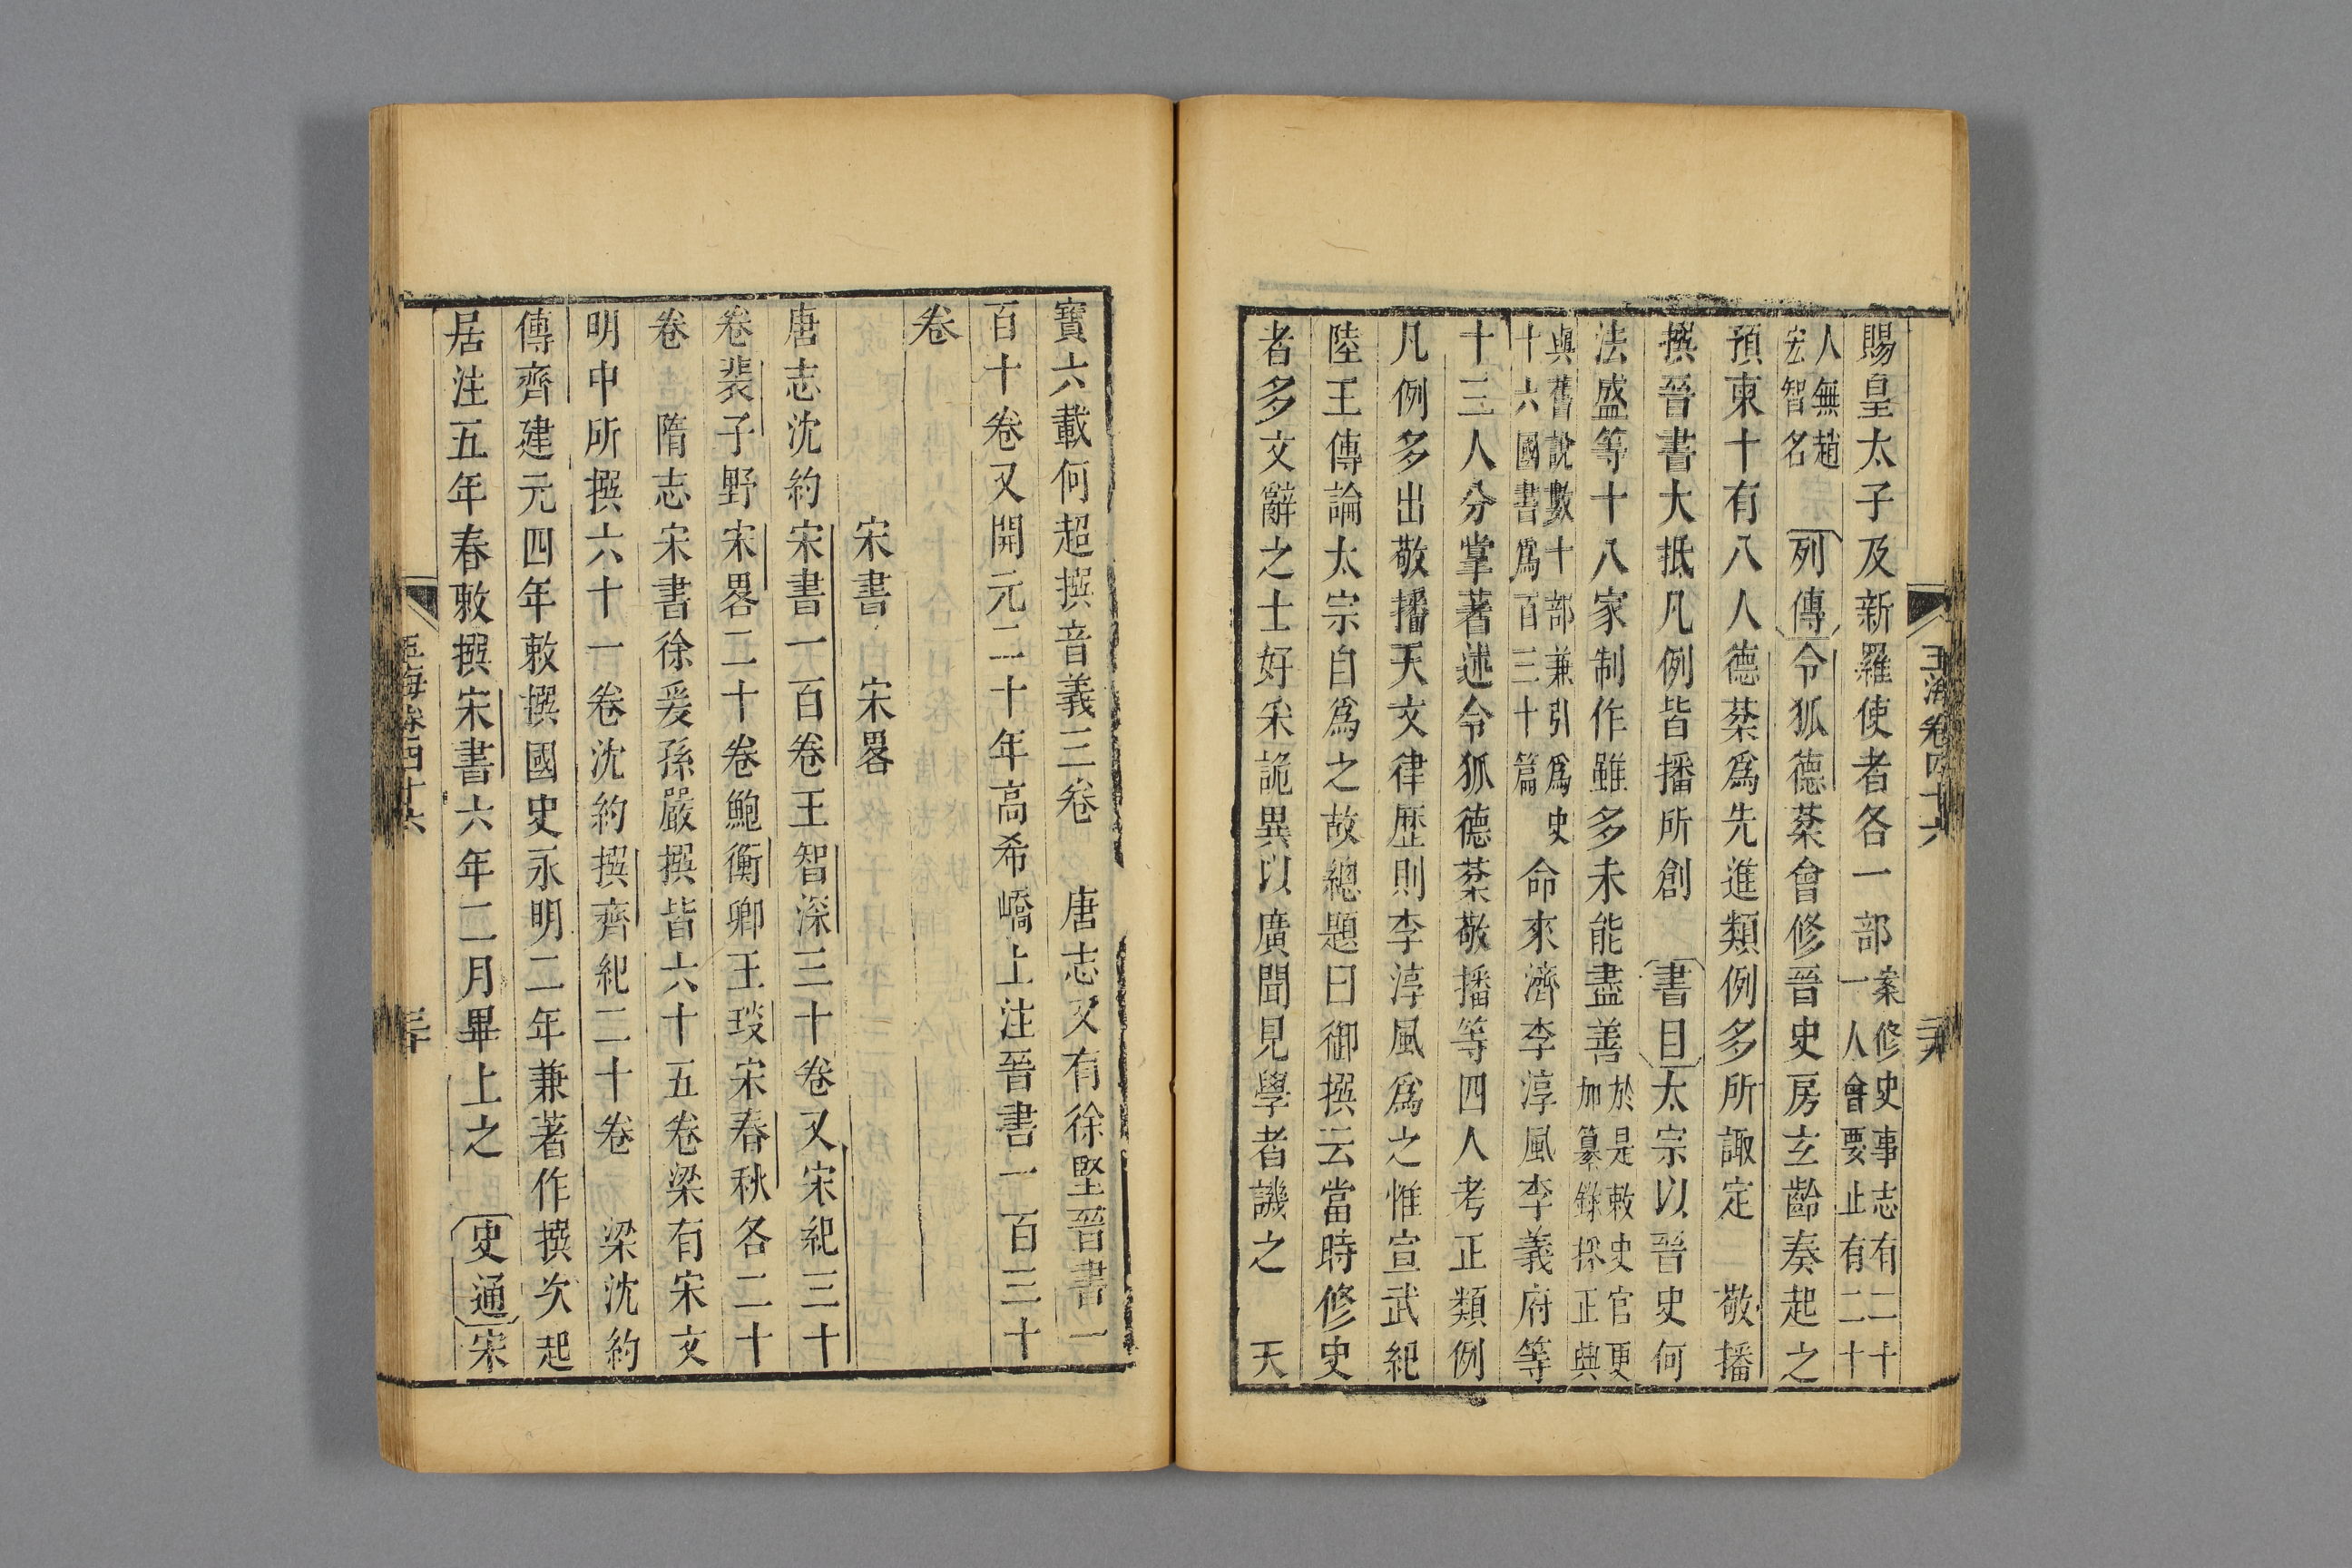 玉海卷四十六
賜皇太子及新羅使者各一部案修史事志有二十一人會要止有二十
人無趙宏智名 列傳令狐德棻會修晉史房玄齡奏起之
預柬十有八人德棻爲先進類例多所諏定 敬播
撰晉書大抵凡例皆播所創 書目太宗以晉史何
法盛等十八家制作雖多未能盡善於是敕史官更加纂錄採正典與
與舊說數十部兼引爲史十六國書爲百三十篇 命來濟李淳風李義府等
十三人分掌著述令狐德棻敬播等四人考正類例
凡例多出敬播天文律歷則李淳風爲之惟宣武紀
陸王傳論太宗自爲之故總題曰御撰云當時修史
者多文辭之士好采詭異以廣聞見學者譏之 天
寶六載何超撰音義三卷 唐志又有徐堅晉書一
百十卷又開元二十年高希嶠上注晉書一百三十
卷
宋書 宋畧
唐志沈約宋書一百卷王智深三十卷又宋紀三十
卷裴子野宋畧二十卷鮑衡卿王琰宋春秋各二十
卷 隋志宋書徐爰孫嚴撰皆六十五卷梁有宋文
明中所撰六十一卷沈約撰齊紀二十卷 梁沈約
傳齊建元四年敕撰國史永明二年兼著作撰次起
居注五年春敕撰宋書六年二月畢上之 史通宋
玉海卷四十六 三十